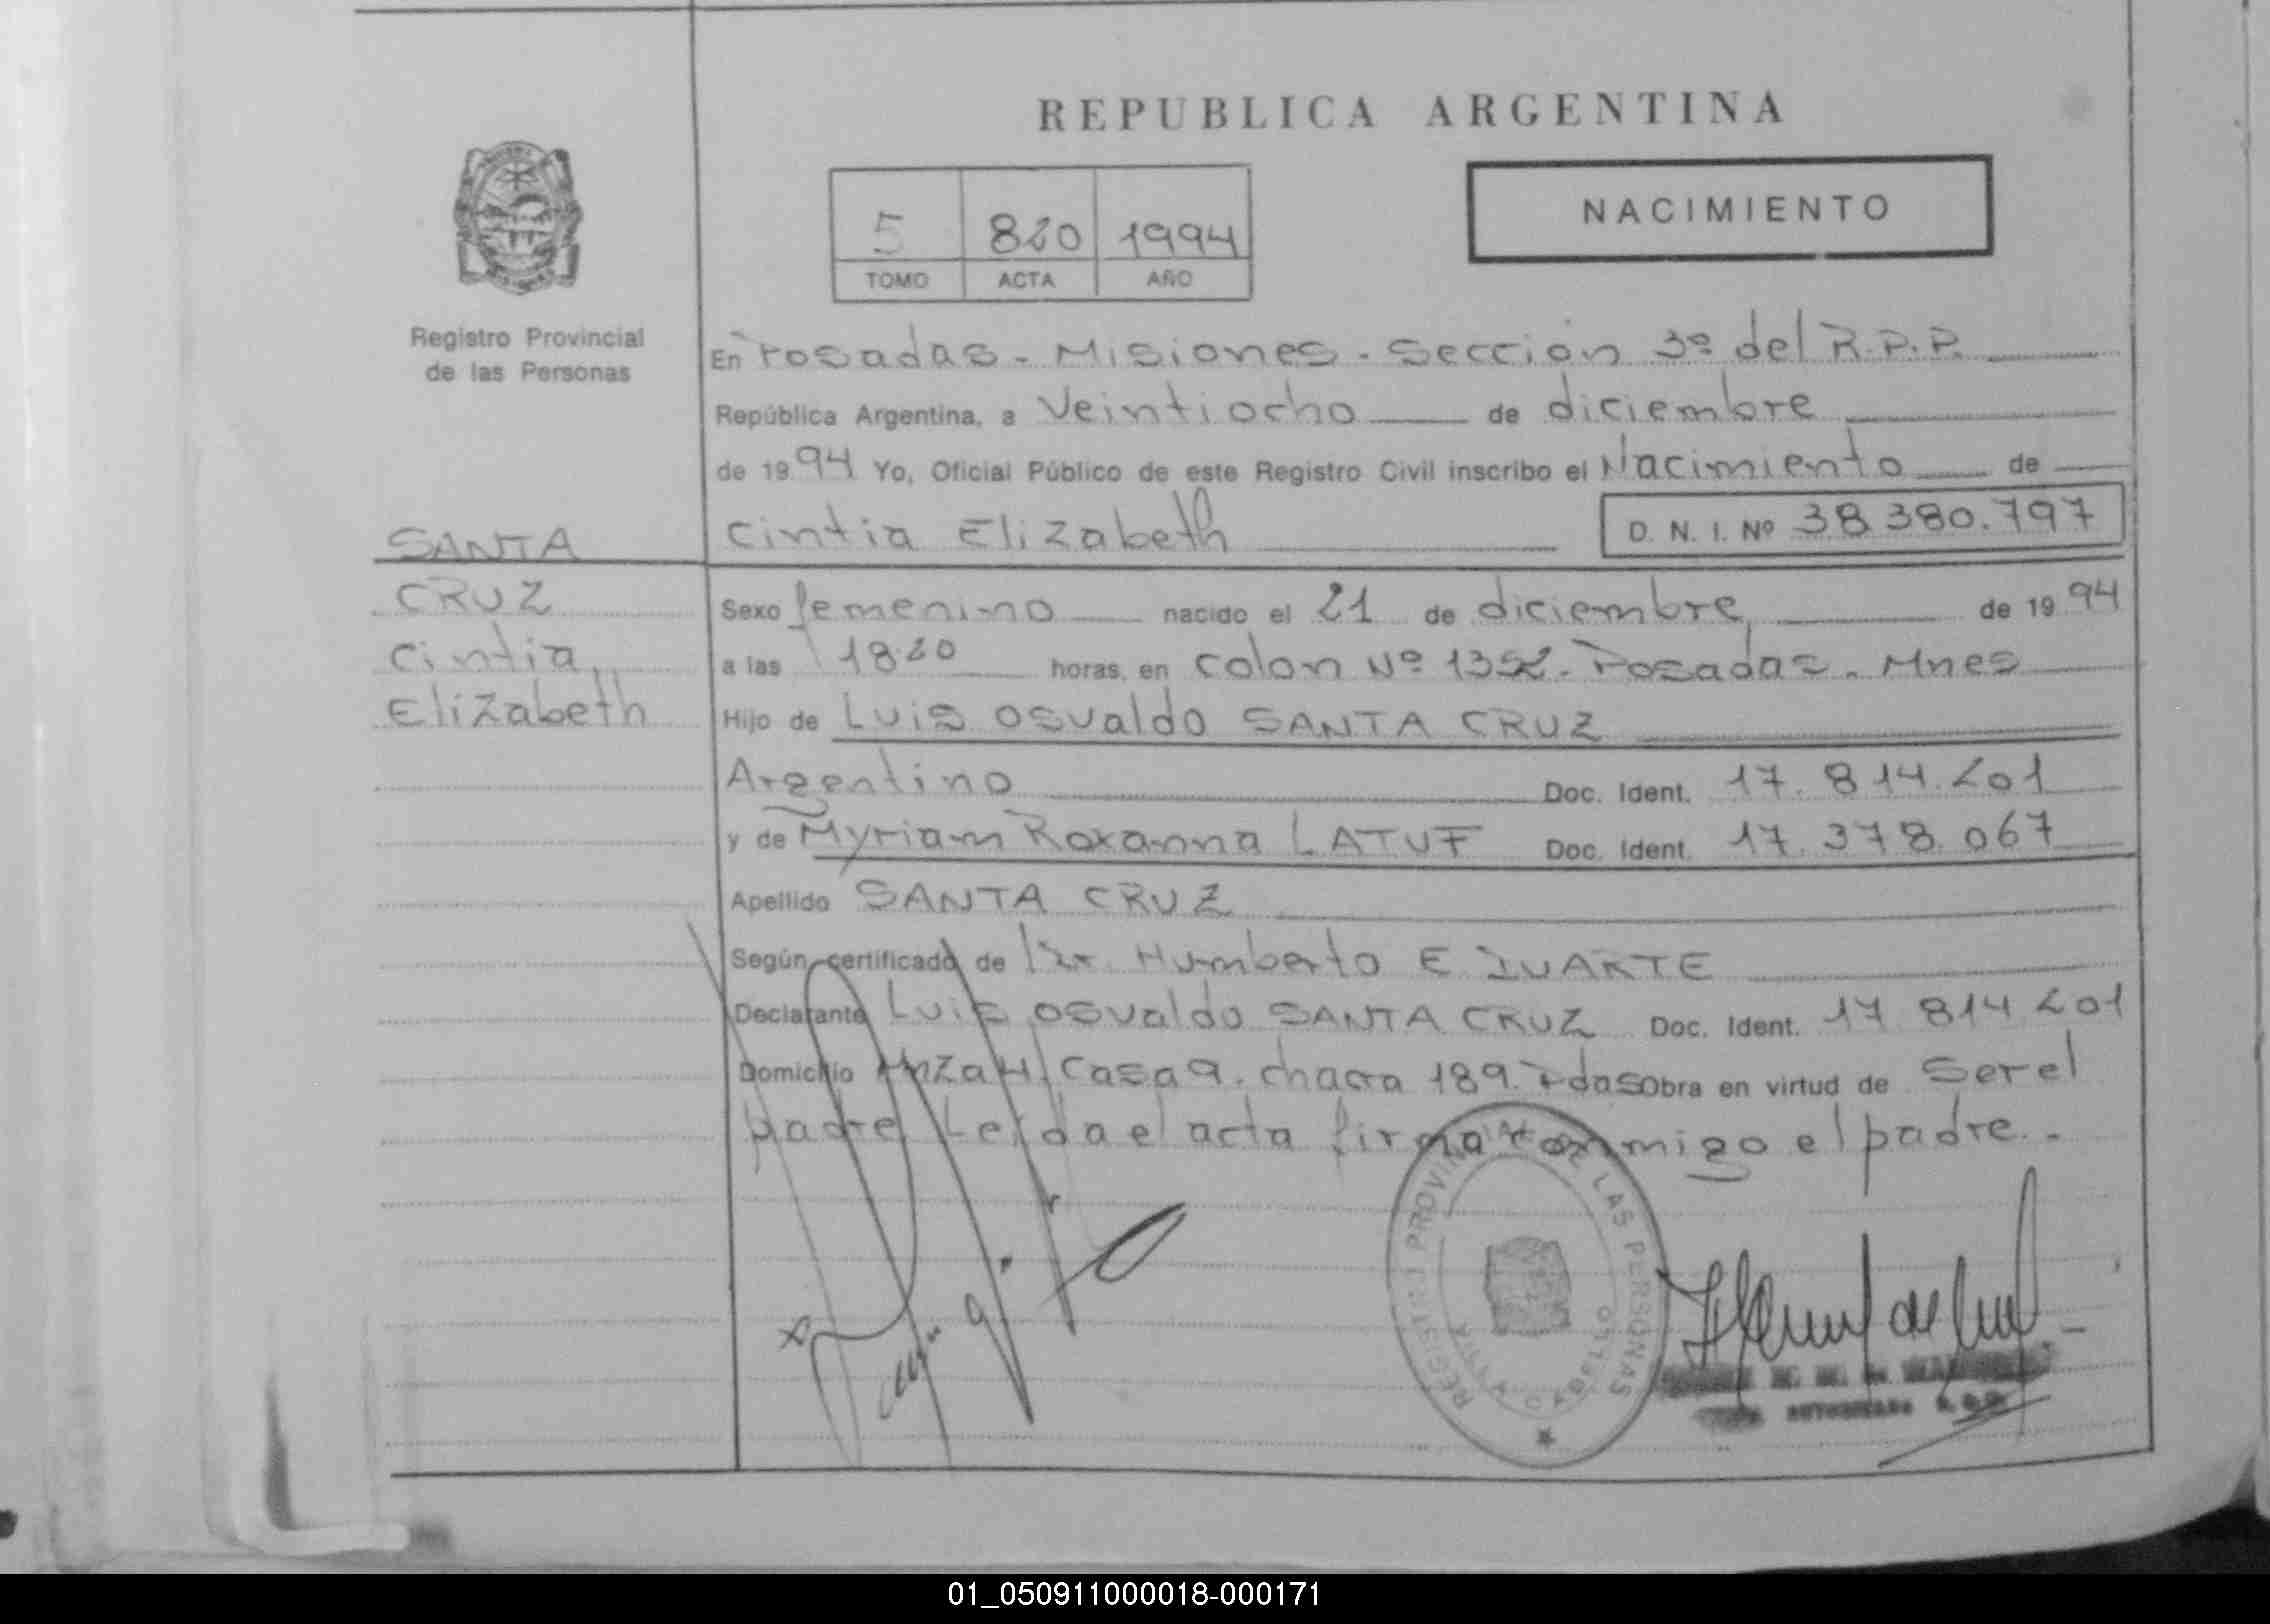 REPUBLICA ARGENTINA
5 820 1994
TOMO ACTA AÑO
NACIMIENTO
Registro Provincial
de las Personas
SANTA
CRUZ
Cintia
Elizabeth
En Posadas - Misiones - Sección 3º del R.P.P.
República Argentina, a Veintiocho de diciembre
de 1994 Yo, Oficial Público de este Registro Civil inscribo el Nacimiento de
Cintia Elizabeth D. N. I. Nº 38.380.797
Sexo femenino nacido el 21 de diciembre de 1994
a las 18.20 horas, en Colon Nº 1352 - Posadas - Mnes
Hijo de Luis Osvaldo SANTA CRUZ
Argentino Doc. Ident. 17.814.201
y de Myriam Roxanna LATUF Doc. Ident. 17.378.067
Apellido SANTA CRUZ
Según certificado de Dr. Humberto E DUARTE
Declarante Luis Osvaldo SANTA CRUZ Doc. Ident. 17 814 201
Domicilio Mza H Casa 9. chacra 189. Pdas Obra en virtud de Ser el
padre Leída el acta firma conmigo el padre.-
REGISTRO PROVINCIAL DE LAS PERSONAS
01_050911000018-000171